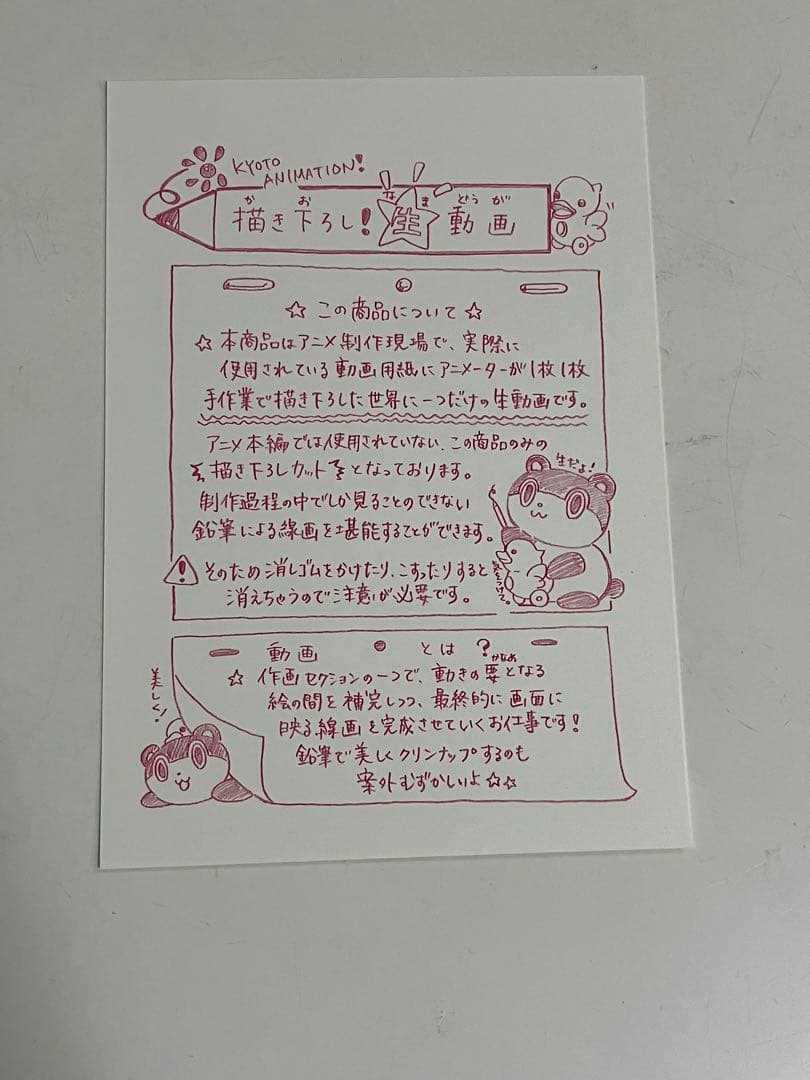 KYOTO
ANIMATION!
か お な ま どうが
描き下ろし! 生 動画
☆ この商品について ☆
☆ 本商品はアニメ制作現場で、実際に
使用されている動画用紙にアニメーターが1枚1枚
手作業で描き下ろした世界に一つだけの生動画です。
アニメ本編では使用されていない、この商品のみの
描き下ろしカットとなっております。
生だよ!
制作過程の中でしか見ることのできない
鉛筆による線画を堪能することができます。
気をつけて。
そのため消しゴムをかけたり、こすったりすると
消えちゃうので注意が必要です。
動画 とは?
かなめ
☆ 作画セクションの一つで、動きの要となる
絵の間を補完しつつ、最終的に画面に
映る線画を完成させていくお仕事です!
鉛筆で美しくクリンナップするのも
案外むずかしいよ☆☆
美しく!